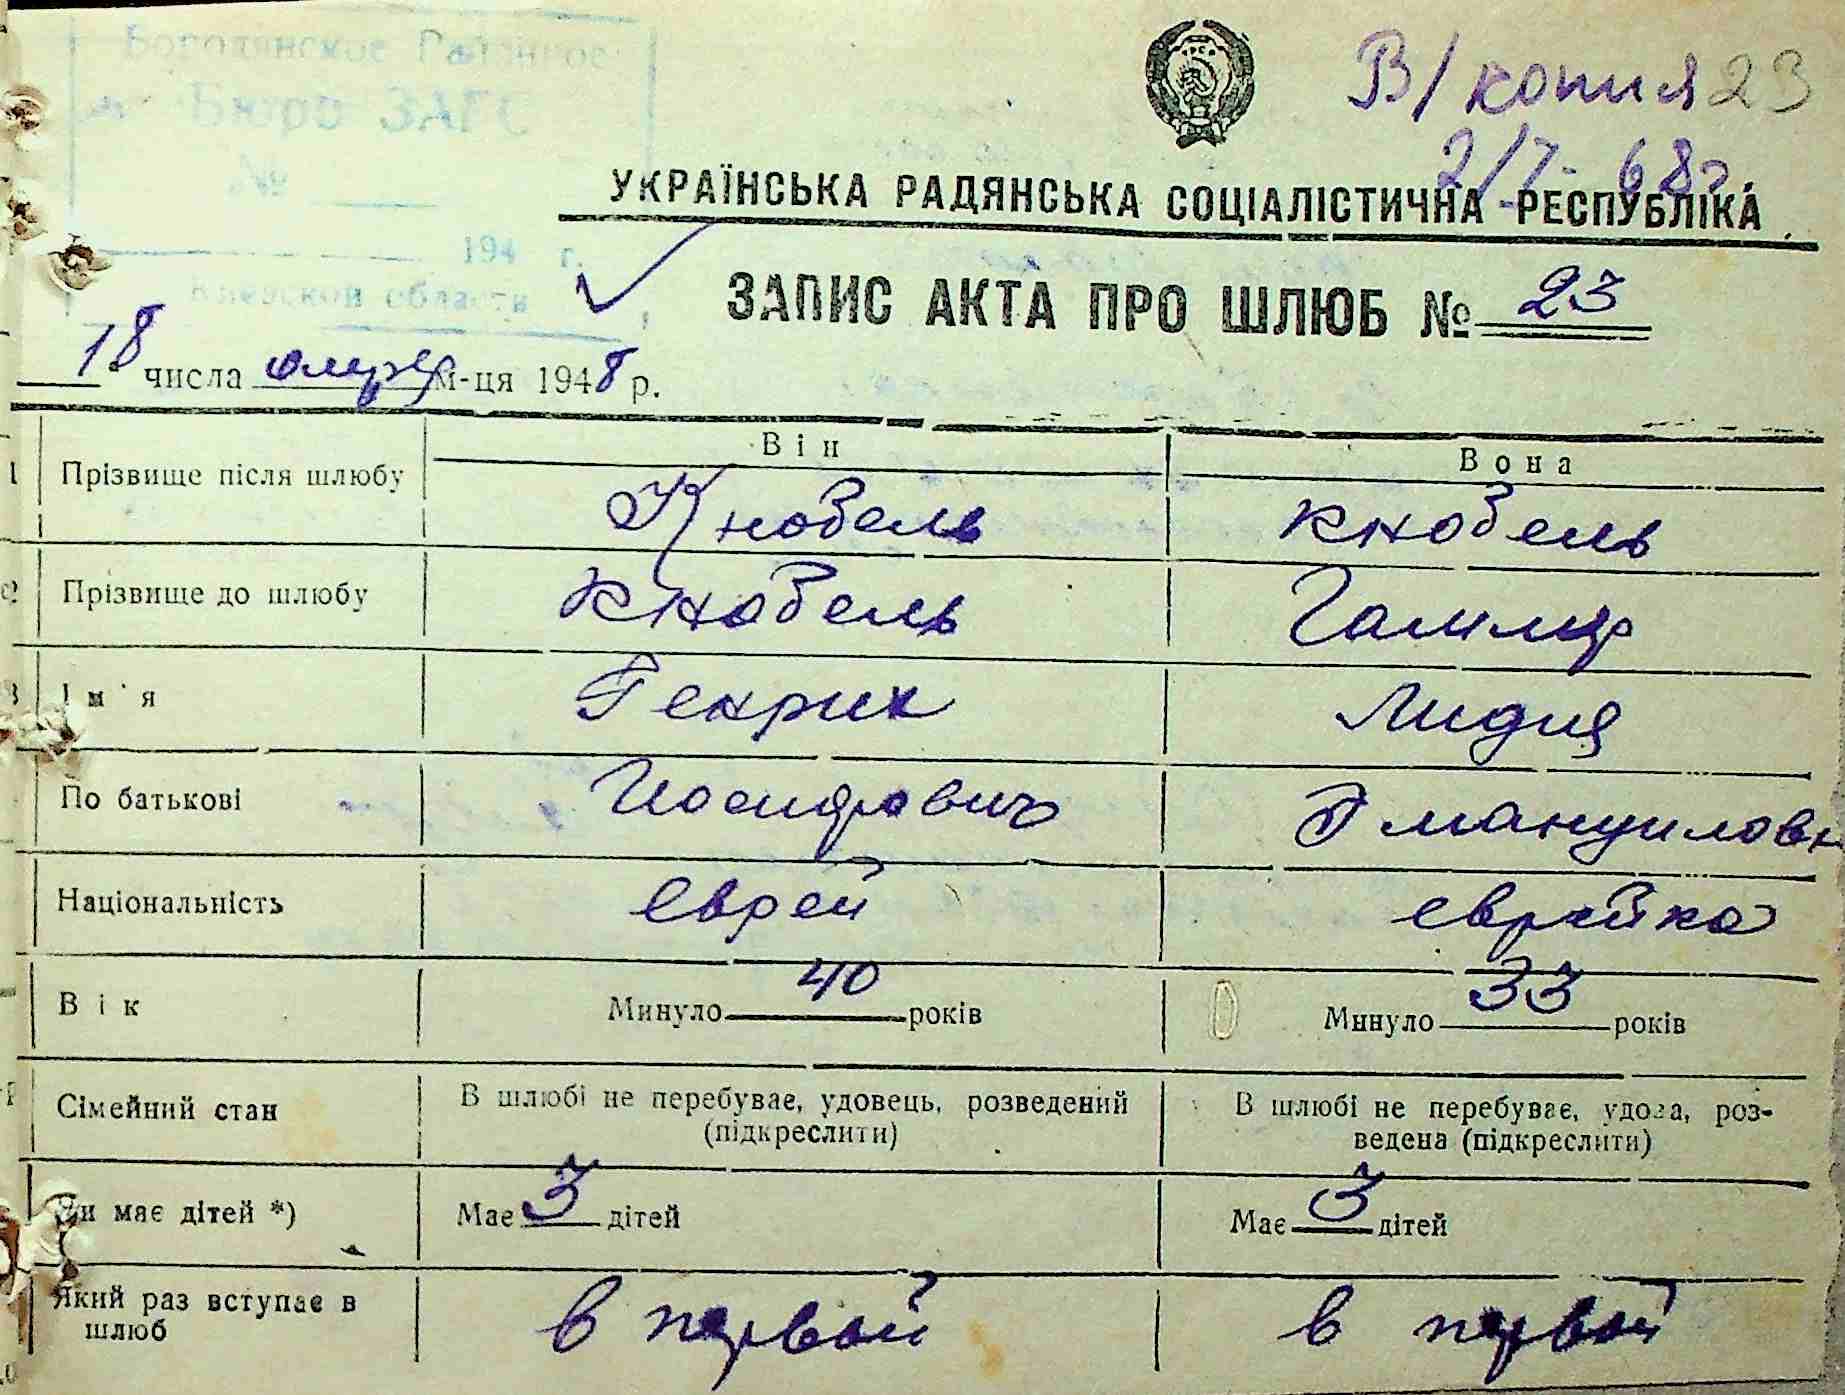 Бородянское Районное
Бюро ЗАГС
№
194 г.
Киевской области
УРСР
В/ копия 23
2/7- 68г.
УКРАЇНСЬКА РАДЯНСЬКА СОЦІАЛІСТИЧНА РЕСПУБЛІКА
ЗАПИС АКТА ПРО ШЛЮБ № 23
18 числа м-ця 1948 р.
Він Вона
1 Прізвище після шлюбу Кнобель Кнобель
2 Прізвище до шлюбу Кнобель
3 Ім'я Генрих Лидия
По батькові Иосифович Эмануиловн
Національність еврей еврейка
Вік Минуло 40 років Минуло 33 років
Сімейний стан В шлюбі не перебуває, удовець, розведений (підкреслити) В шлюбі не перебуває, удова, роз-
ведена (підкреслити)
Чи має дітей *) Має 3 дітей Має 3 дітей
Який раз вступає в
шлюб в первый в первый